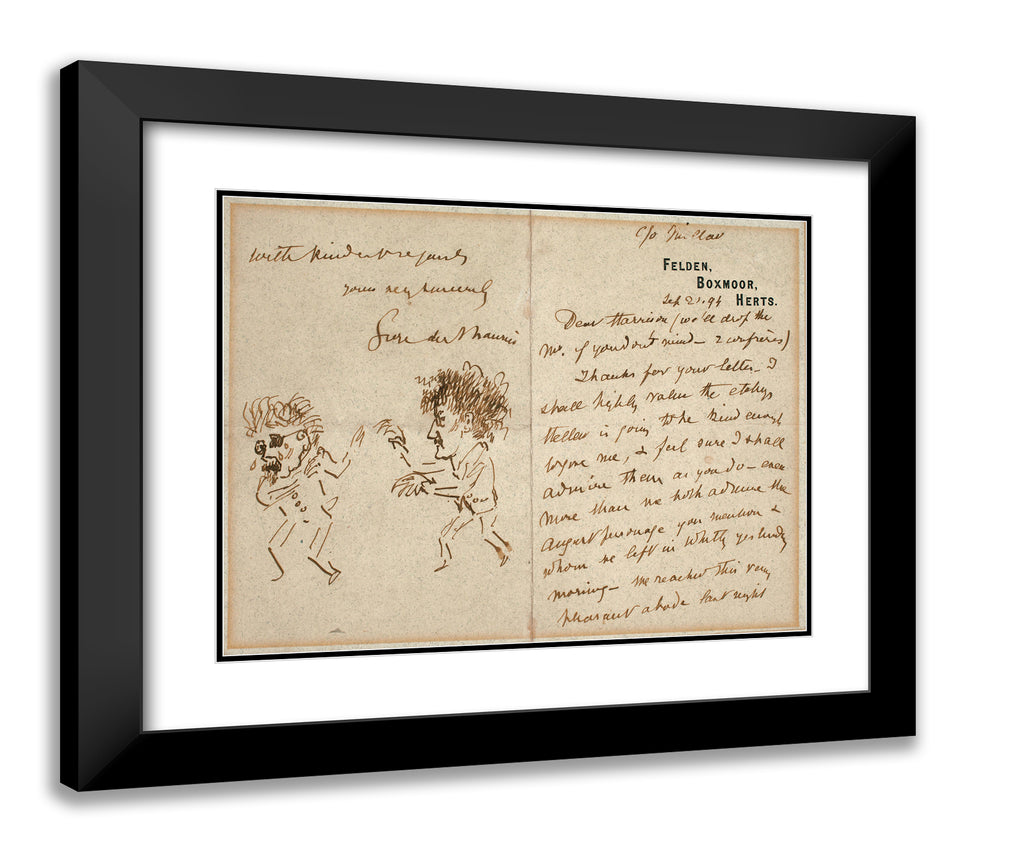 with kindest regards
yours very sincerely
du Maurier
c/o
FELDEN,
BOXMOOR,
HERTS.
Sep 21. 94
Dear Harrison (we'll drop the
Mr. if you don't mind — 2 confrères)
Thanks for your letter — I
shall highly value the etchings
Helleu is going to be kind enough
to give me, & feel sure I shall
admire them as you do — even
more than we both admire the
august personage you mention &
whom we left in Whitby yesterday
morning — We reached this very
pleasant abode last night